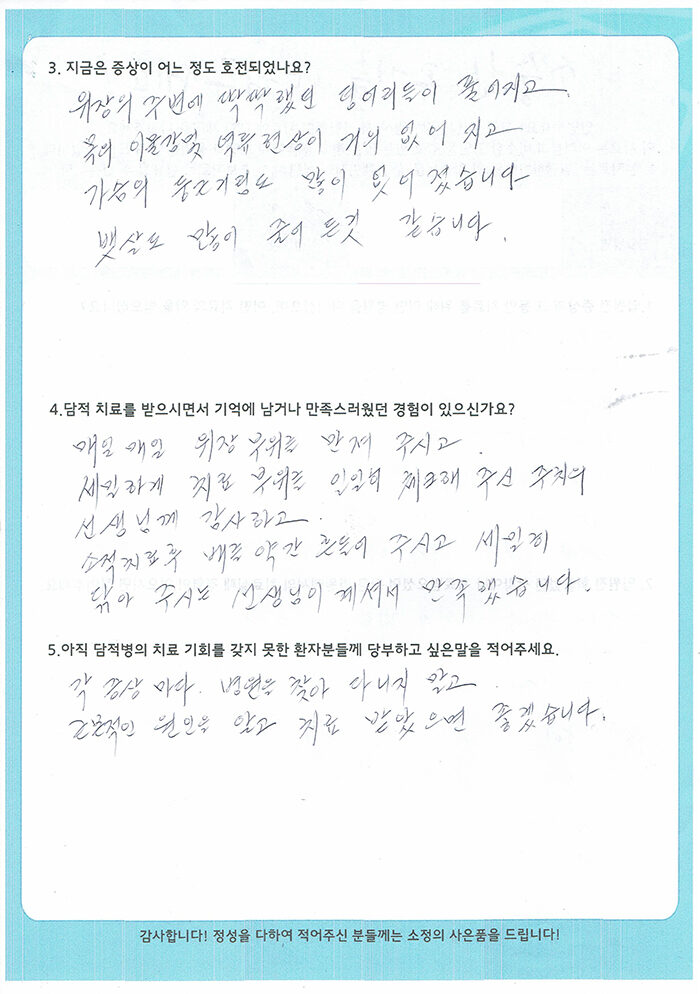 3. 지금은 증상이 어느 정도 호전되었나요?
위장의 주변에 딱딱했던 덩어리들이 풀어지고
목의 이물감및 역류현상이 거의 없어 지고
가슴의 두근거림도 많이 없어 졌습니다
뱃살도 많이 줄어 든것 같습니다.
4.담적 치료를 받으시면서 기억에 남거나 만족스러웠던 경험이 있으신가요?
매일 매일 위장 부위를 만져 주시고.
세밀하게 치료 부위를 일일히 체크해 주신 주치의
선생님께 감사하고.
소적치료후 배를 약간 흔들어 주시고 세밀히
닦아 주시는 선생님이 계셔서 만족했습니다.
5.아직 담적병의 치료 기회를 갖지 못한 환자분들께 당부하고 싶은말을 적어주세요.
각 증상 마다. 병원을 찾아 다니지 말고
근본적인 원인을 알고 치료 받았으면 좋겠습니다.
감사합니다! 정성을 다하여 적어주신 분들께는 소정의 사은품을 드립니다!